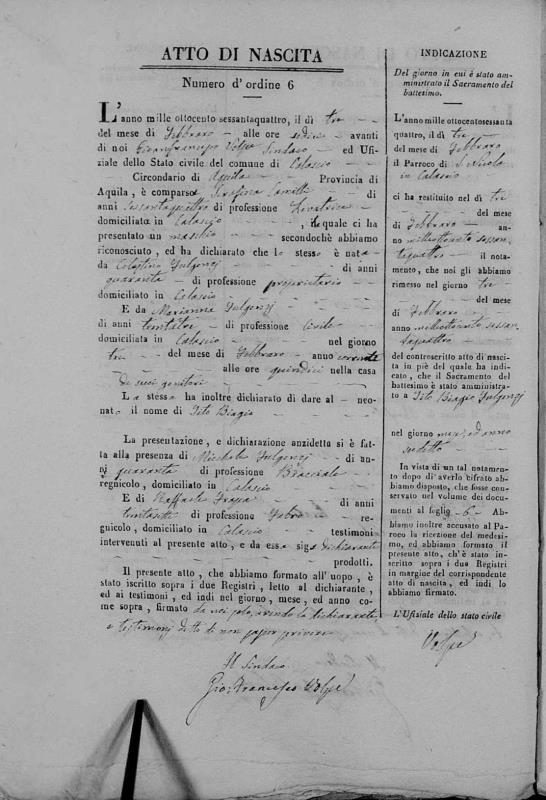 ATTO DI NASCITA
Numero d'ordine 6
L'anno mille ottocento sessantaquattro, il dì tre
del mese di Febbraro alle ore sedici avanti
di noi Gianfrancesco Volpe Sindaco ed Ufi-
ziale dello Stato civile del comune di Calascio
Circondario di Aquila Provincia di
Aquila, è comparsa Giuseppa di
anni sessantaquattro di professione Levatrice
domiciliata in Calascio, il quale ci ha
presentato un maschio secondochè abbiamo
riconosciuto, ed ha dichiarato che lo stesso è nato
da Celestino Fulgenzj di anni
quaranta di professione proprietario
domiciliato in Calascio
E da Marianna Fulgenzj
di anni trentatre di professione civile
domiciliata in Calascio nel giorno
tre del mese di Febbraro anno corrente
alle ore quindici nella casa
di suoi genitori
La stessa ha inoltre dichiarato di dare al neo-
nato il nome di Tito Biagio
La presentazione, e dichiarazione anzidetta si è fat-
ta alla presenza di Michele Fulgenzj di an-
ni quaranta di professione Bracciale
regnicolo, domiciliato in Calascio
E di Raffaele di anni
di professione Fabro re-
gnicolo, domiciliato in Calascio testimoni
intervenuti al presente atto, e da essa sigª dichiarante
prodotti.
Il presente atto, che abbiamo formato all'uopo, è
stato iscritto sopra i due Registri, letto al dichiarante,
ed ai testimoni, ed indi nel giorno, mese, ed anno co-
me sopra, firmato da noi solo, avendo la dichiarante,
e testimonj detto di non saper scrivere
Il Sindaco
Gio: Francesco Volpe
INDICAZIONE
Del giorno in cui è stato am-
ministrato il Sacramento del
battesimo.
L'anno milleottocentosessanta
quattro, il dì tre
del mese di Febbraro
il Parroco di S. Nicola
in Calascio
ci ha restituito nel dì tre
del mese
di Febbraro an-
no milleottocento sessan-
taquattro il nota-
mento, che noi gli abbiamo
rimesso nel giorno tre
del mese
di Febbraro
anno milleottocento sessan-
taquattro
del controscritto atto di nasci-
ta in piè del quale ha indi-
cato, che il Sacramento del
battesimo è stato amministra-
to a Tito Biagio Fulgenzj
nel giorno mese, ed anno
sudetto
In vista di un tal notamento
dopo di averlo cifrato abbia-
mo disposto, che fosse con-
servato nel volume dei docu-
menti al foglio 6 Ab-
biamo inoltre accusato al Pa-
roco la ricezione del medesi-
mo, ed abbiamo formato il
presente atto, ch'è stato in-
scritto sopra i due Registri
in margine del corrispondente
atto di nascita, ed indi lo
abbiamo firmato.
L'Ufiziale dello stato civile
Volpe